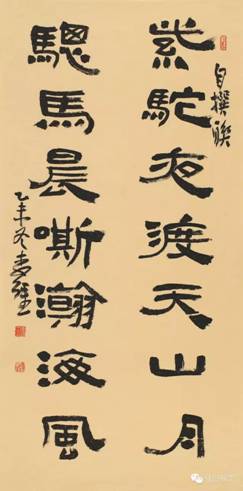 自撰聯
紫駝夜渡天山月
驄馬晨嘶瀚海風
乙未冬